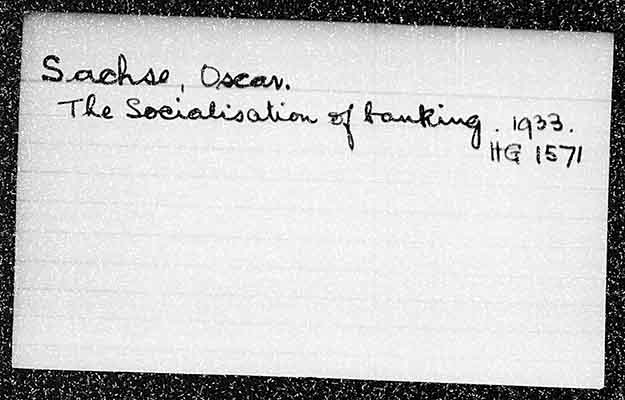 Sachse, Oscar.
The Socialisation of banking. 1933.
HG 1571